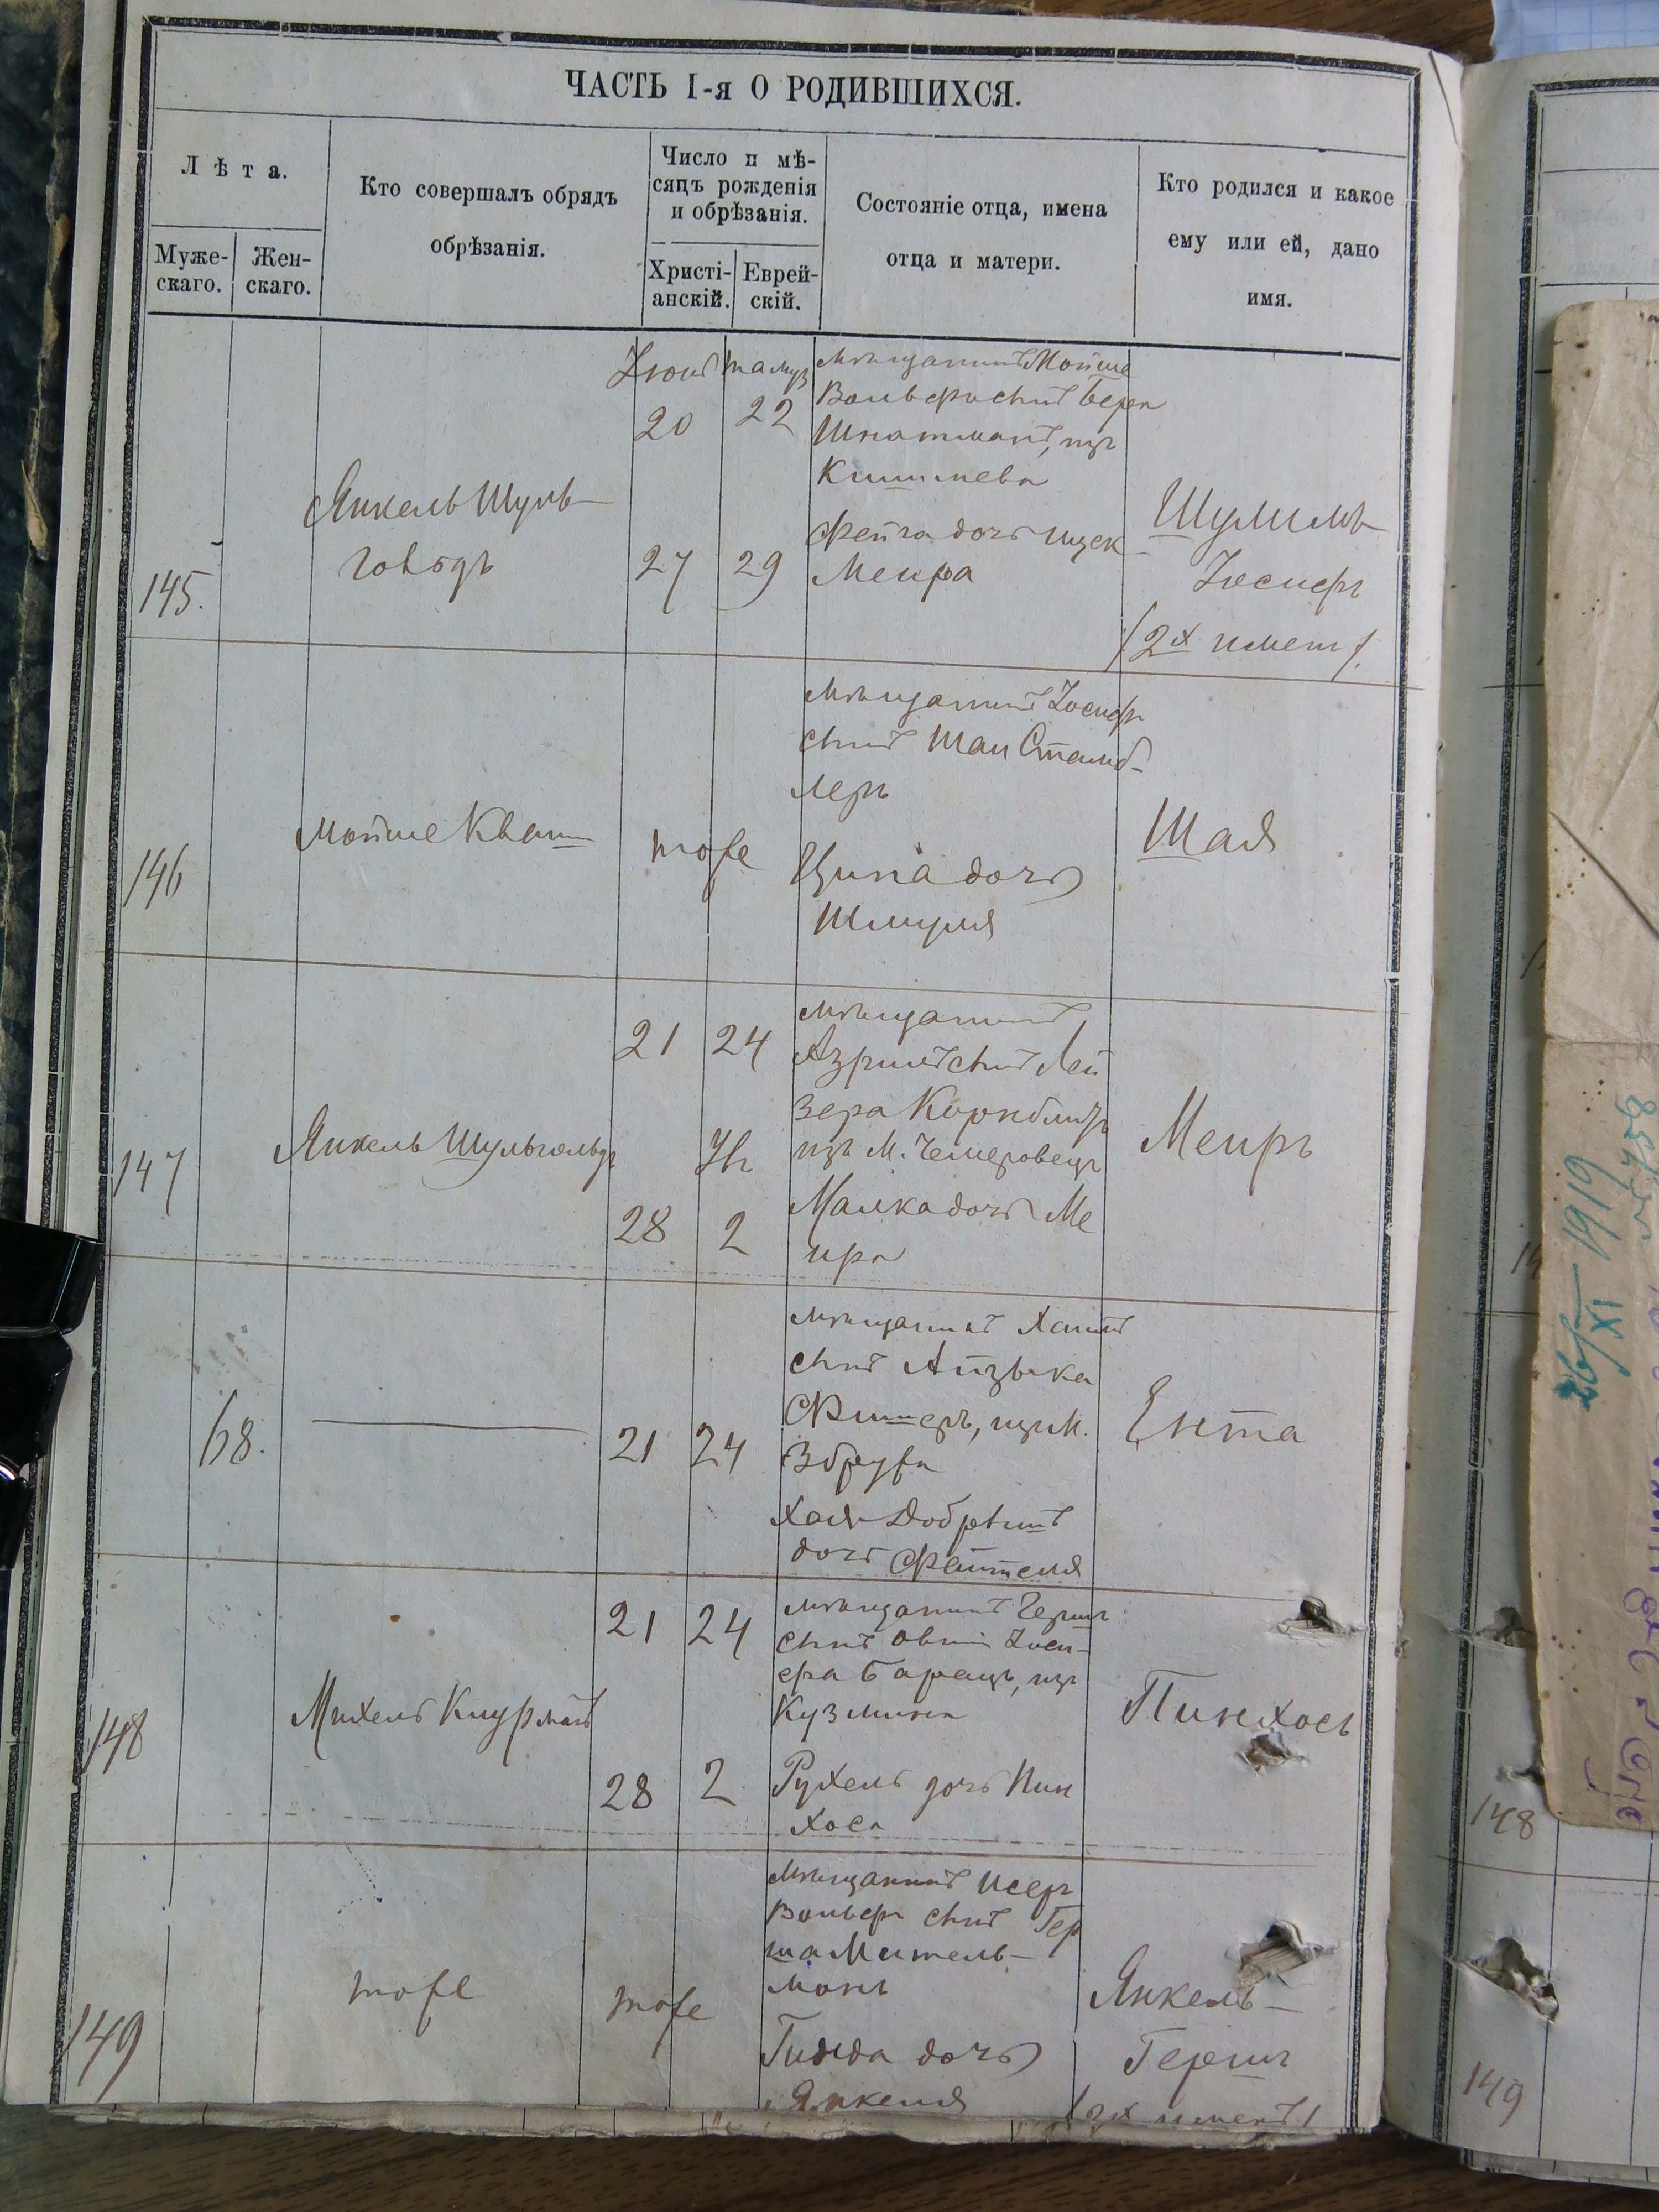 ЧАСТЬ I-я О РОДИВШИХСЯ.
Лѣта.
Муже-
скаго.
Жен-
скаго.
Кто совершалъ обрядъ
обрѣзанія.
Число и мѣ-
сяцъ рожденія
и обрѣзанія.
Христі-
анскій.
Еврей-
скій.
Состояніе отца, имена
отца и матери.
Кто родился и какое
ему или ей, дано
имя.
145.
Янкель Шуль-
Тамуз
20 22
27 29
мѣщанинъ Мойше
Вольфъ сынъ Бера
изъ
Кишинева
Фейга дочь Ицек-
Меира
Шулимъ-
Іосифъ
/2х именъ/.
146
Мойше Кваш
тоже
мѣщанинъ Іосифъ
сынъ Шаи Стамб-
леръ
Ципа дочь
Шмуля
Шая
147
Янкель Шульгольдъ
21 24
28 2
мѣщанинъ
Азриль сынъ Лей
зера Корнблитъ
изъ М. Чемеровецъ
Малка дочь Ме
ира
Меиръ
68.
21 24
мѣщанинъ Хаимъ
сынъ Айзыка
Фишеръ, изъ М.
Збружа
Хая-Добрышъ
дочь Фейтеля
Ента
148
Михель Кнурманъ
21 24
28 2
мѣщанинъ Гершъ
сынъ Овши Іоси-
фа Барацъ, изъ
Кузмина
Рухель дочь Пин
хоса
Пинхосъ
149
тоже
тоже
мѣщанинъ Исеръ
Вольфъ сынъ Гер
ша Мительь-
манъ
Гинда дочь
Янкеля
Янкель-
Гершъ
/2х именъ/
148
149
26/XI 1919